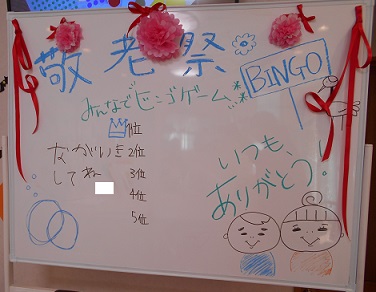 敬老祭
BINGO
みんなでビンゴゲーム
1位
ながいき 2位
してね 3位
4位
5位
いつも、
ありがとう!